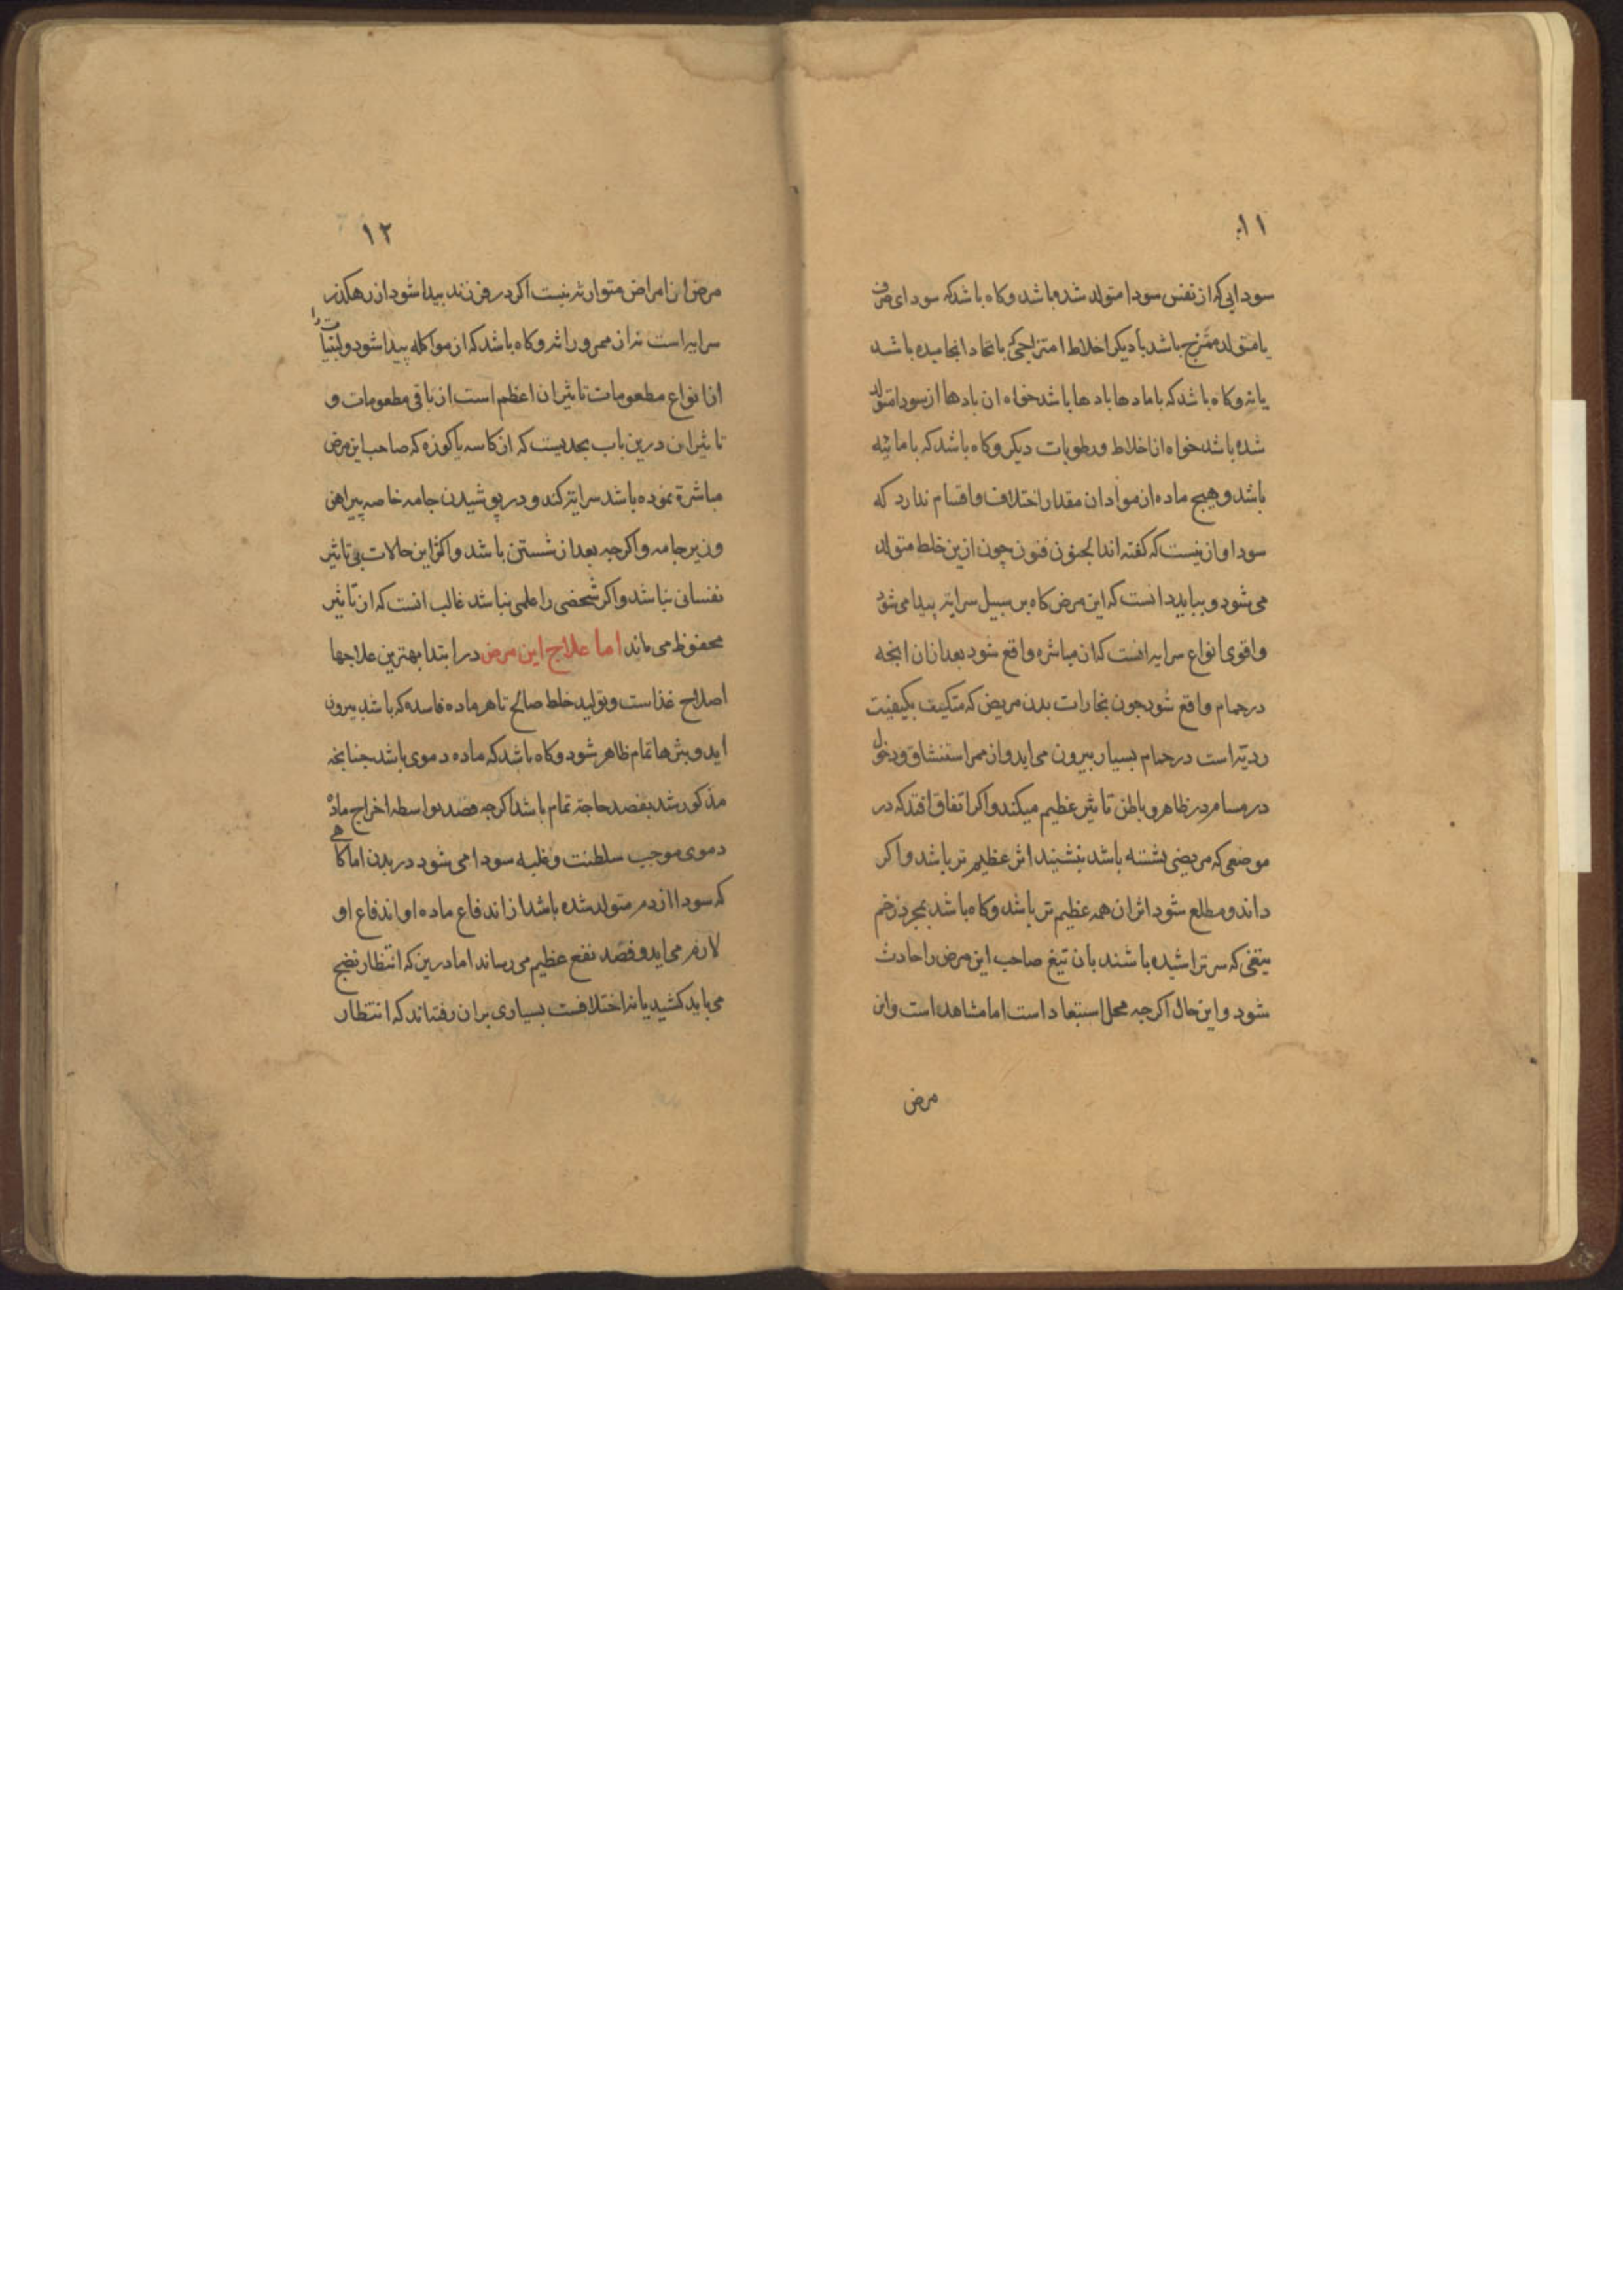 ۱۱
سودایی که از نفس سودا متولد شده باشد و کاه باشد که سودای صرف
یا متولد ممتزج باشد با دیکر اخلاط امتزاجی که باتحاد انجامیده باشد
یا نه و کاه باشد که با مادها بادها باشد خواه ان بادها از سودا متولد
شده باشد خواه از اخلاط و رطوبات دیکر و کاه باشد که با مائیه
باشد و هیچ ماده از مواد ان مقدار اختلاف و اقسام ندارد که
سودا و ازینست که کفته اند الجنون فنون چون ازین خلط متولد
می شود و بباید دانست که این مرض کاه بر سبیل سرایة پیدا می شود
و اقوی انواع سرایه انست که از مباشره واقع شود بعد از ان انجه
در حمام واقع شود جون بخارات بدن مریض که متکیف بکیفیت
ردیة است در حمام بسیار بیرون می اید و از ممر استنشاق و دخول
در مسام در ظاهر و باطن تاثیر عظیم میکند و اکر اتفاق افتد که در
موضعی که مریضی نشسته باشد بنشیند اثر عظیم تر باشد و اکر
داند و مطلع شود اثر ان همه عظیم تر باشد و کاه باشد بمجرد زخم
تیغی که سر تراشیده باشند بان تیغ صاحب این مرض را حادث
شود و این حال اکرجه محل استبعاد است اما مشاهده است و این
مرض
۱۲
مرض از امراض متوارثه نیست اکر در فرزند پیدا شود از رهکذر
سرایه است نه از ممر وراثه و کاه باشد که از مواکله پیدا شود و لبنیات را
از انواع مطعومات تاثیر ان اعظم است از باقی مطعومات و
تاثیر ان درین باب بحدیست که از کاسه یا کوزه که صاحب این مرض
مباشرة نموده باشد سرایة کند و در پوشیدن جامه خاصه پیراهن
و زیر جامه و اکرجه بعد از شستن باشد و اکثر این حالات بی تاثیر
نفسانی نباشد و اکر شخصی را علمی نباشد غالب انست که از تاثیر
محفوظ می ماند اما علاج این مرض در ابتدا بهترین علاجها
اصلاح غذاست و تولید خلط صالح تا هر ماده فاسده که باشد بیرون
اید و بثرها تمام ظاهر شود و کاه باشد که ماده دموی باشد جنانجه
مذکور شد بفصد حاجة تمام باشد اکرجه فصد بواسطه اخراج ماده
دموی موجب سلطنت و غلبه سودا می شود در بدن اما کاهی
که سودا از دم متولد شده باشد از اندفاع ماده او اندفاع او
لازم می اید و فصد نفع عظیم می رساند اما درین که انتظار نضج
می باید کشید یا نه اختلافست بسیاری بر ان رفته اند که انتظار